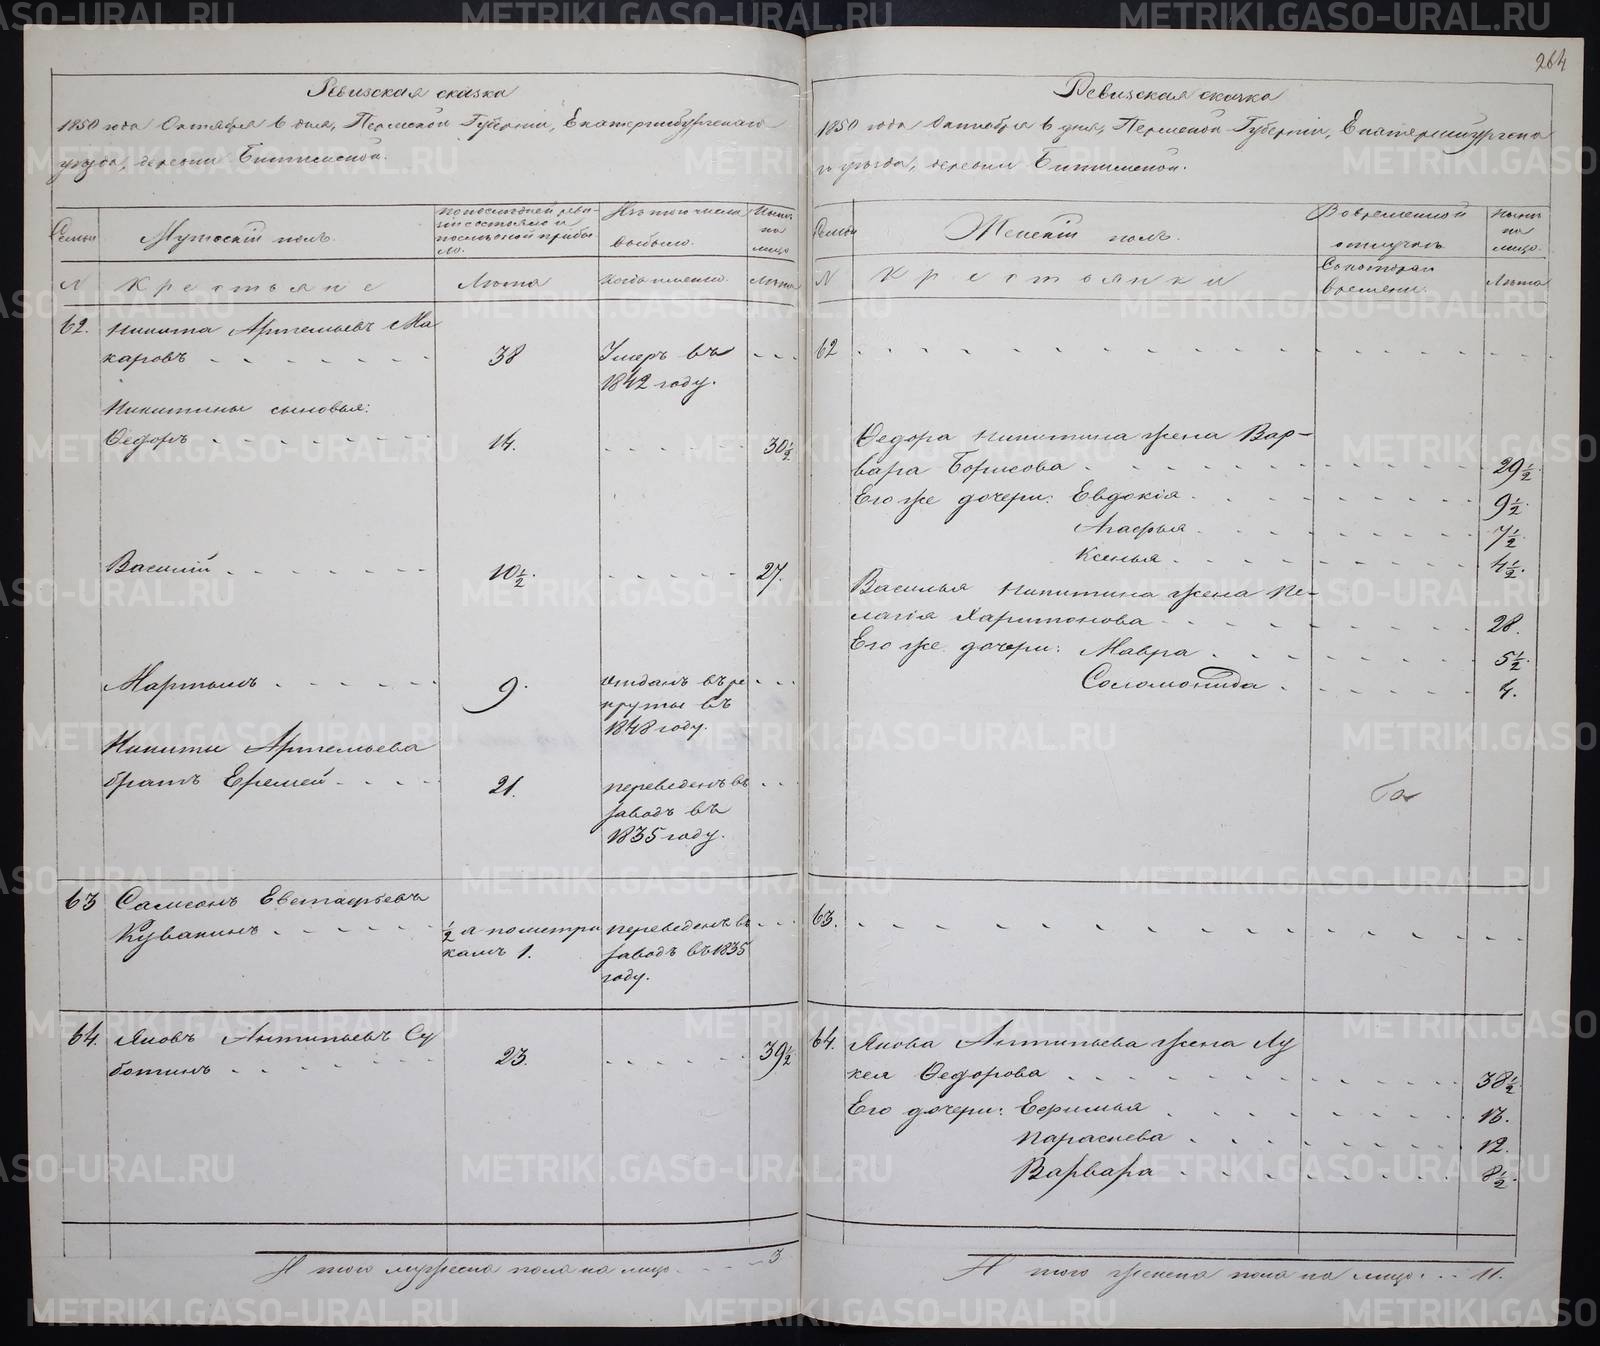 264
Ревизская сказка
1850 года Октября 6 дня, Пермской Губернiи, Екатеринбургскаго
уезда, деревни Битимской.
Семьи
Мужескiй полъ.
по последней реви-
зiи состояло и
после оной прибы
ло.
Изъ того числа
выбыло.
Ныне
на
лицо
N
Крестьяне
Лета
Когда именно.
Лета
62.
Никита Артемьевъ Ма
каровъ
38
Умеръ въ
1842 году.
Никитины сыновья:
Федоръ
14.
30 1/2
Василiй
10 1/2.
27.
Мартынъ
9.
отданъ въ ре
круты въ
1848 году.
Никиты Артемьева
братъ Еремей
21.
переведенъ въ
заводъ въ
1835 году.
63
Самсонъ Евстафьевъ
Кувакинъ
1/2 а по метри
камъ 1.
переведенъ въ
заводъ въ 1835
году.
64.
Яковъ Антипьевъ Су
ботинъ
23.
39 1/2
И того мужеска пола на лицо 3
Ревизская сказка
1850 года Октября 6 дня, Пермской Губернiи, Екатеринбургска
го уезда, деревни Битимской.
Семьи
Женскiй полъ.
Во временной
отлучке
Ныне
на
лицо.
N
Крестьянки
Съ котораго
времени.
Лета
62
Федора Никитина жена Вар-
вара Борисова
29 1/2
Его же дочери: Евдокiя
9 1/2
Агафья
7 1/2
Ксенья
4 1/2.
Василья Никитина жена Пе-
лагiя Харитонова
28.
Его же дочери: Мавра
5 1/2
Соломонида
4.
63.
64.
Якова Антипьева жена Лу
кея Федорова
38 1/2
Его дочери: Ефимья
13.
Параскева
12.
Варвара
8 1/2.
И того женска пола на лицо 11.
METRIKI.GASO-URAL.RU